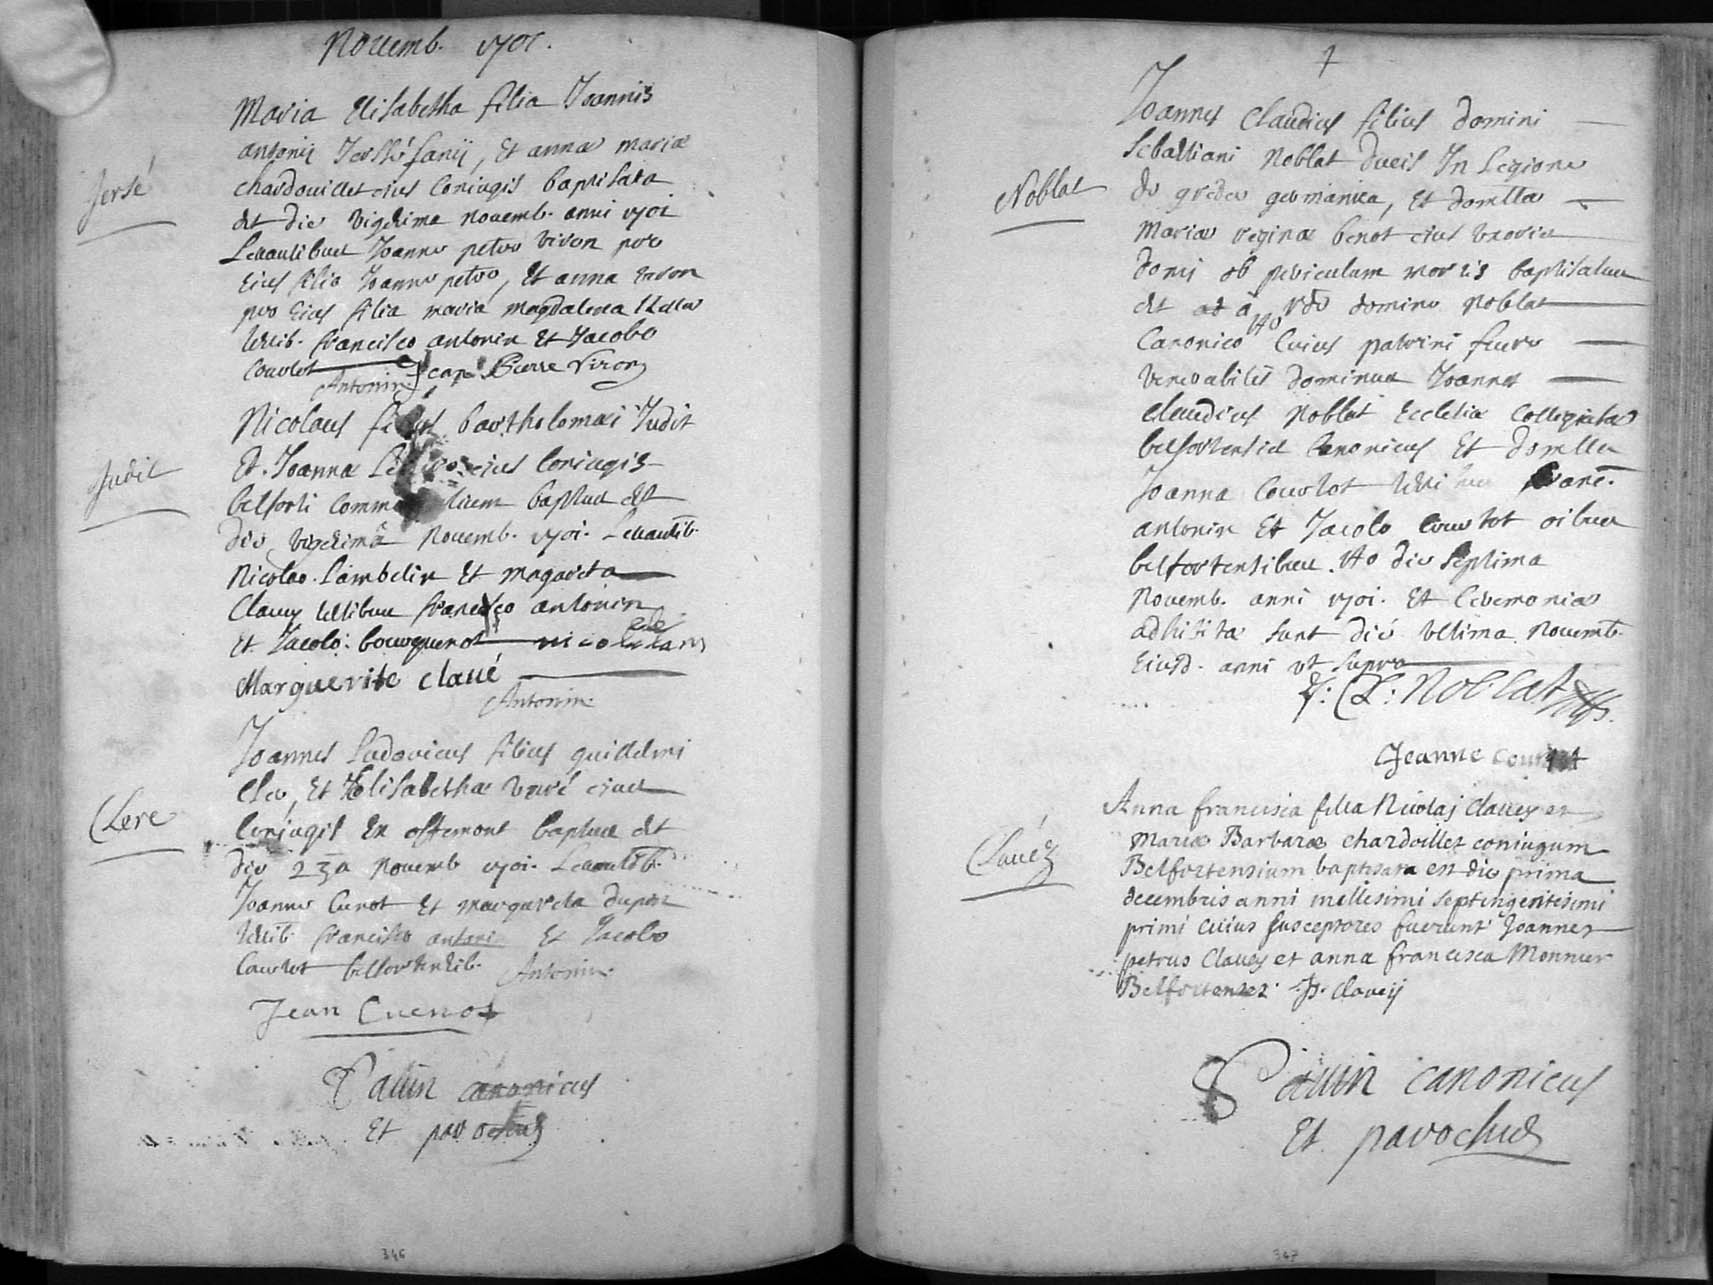 Novemb. 1701.
Maria Elisabetha filia Joannis
antonij Jersé fanij, Et annæ mariæ
Jersé
chardouillet eius Coniugis baptisata
est die vigesima novemb. anni 1701
Levantibus Joanne petro viron pro
Eius filio Joanne petro, Et anna viron
pro Eius filia maria magdalena
testib. francisco antonin Et Jacobo
Courtot
Antonin Jean Pierre Viron
Nicolaus bartholomæi Judit
Et Joannæ eius Coniugis
Judit
belforti baptus est
die vigesima Novemb. 1701. Levantib.
Nicolao Lambelin Et Magareta
Clavey testibus francisco antonin
Et Jacobo bourquenot nicolas
Marguerite clavé
Antonin
Joannes Ludovicus filius guillelmi
Cler, Et Elisabethæ eius
Clere
Coniugis Ex offemont baptus est
die 23a Novemb 1701. Levantib.
Joanne Cunot Et margareta dupon
testib. francisco antonin Et Jacobo
Courtot belfortensib. Antonin.
Jean Cuenot
Pavin canonicus
Et parochus
346
Joannes Claudius filius domini
Sebastiani Noblat ducis In Legione
Noblat
de greder germanica, Et domlla
Mariæ reginæ benot eius uxoris
domi ob periculum mortis baptisatus
est ad a rdo domino Noblat
Canonico Cuius patrini fuere
venerabilis dominus Joannes
Claudius Noblat Ecclesiæ Collegiatæ
belfortensis Canonicus Et domlla
Joanna Courtot
antonin Et Jacobo Courtot oibus
belfortensibus. die septima
Novemb. anni 1701. Et Ceremoniæ
adhibitæ sunt die ultima Novemb.
Eiusd. anni ut supra
J: Cl: Noblat
Jeanne courtot
Anna francisca filia Nicolaj clavey et
Mariæ Barbaræ chardoillet coniugum
Clavéz
Belfortensium baptisata est die prima
decembris anni millesimi septingentisimi
primi cuius susceptores fuerunt Joannes
petrus Clavey et anna francisca Monnier
Belfortenses. J. p. claveij
Pavin canonicus
Et parochus
347